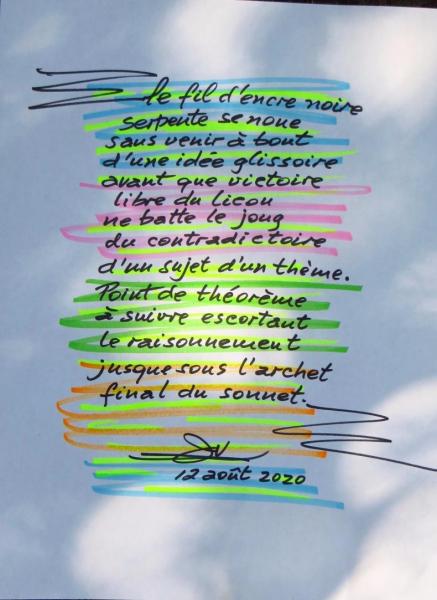 le fil d'encre noire
serpente se noue
sans venir à bout
d'une idée glissoire
avant que victoire
libre du licou
ne batte le joug
du contradictoire
d'un sujet d'un thème.
Point de théorème
à suivre escortant
le raisonnement
jusque sous l'archet
final du sonnet.
12 août 2020